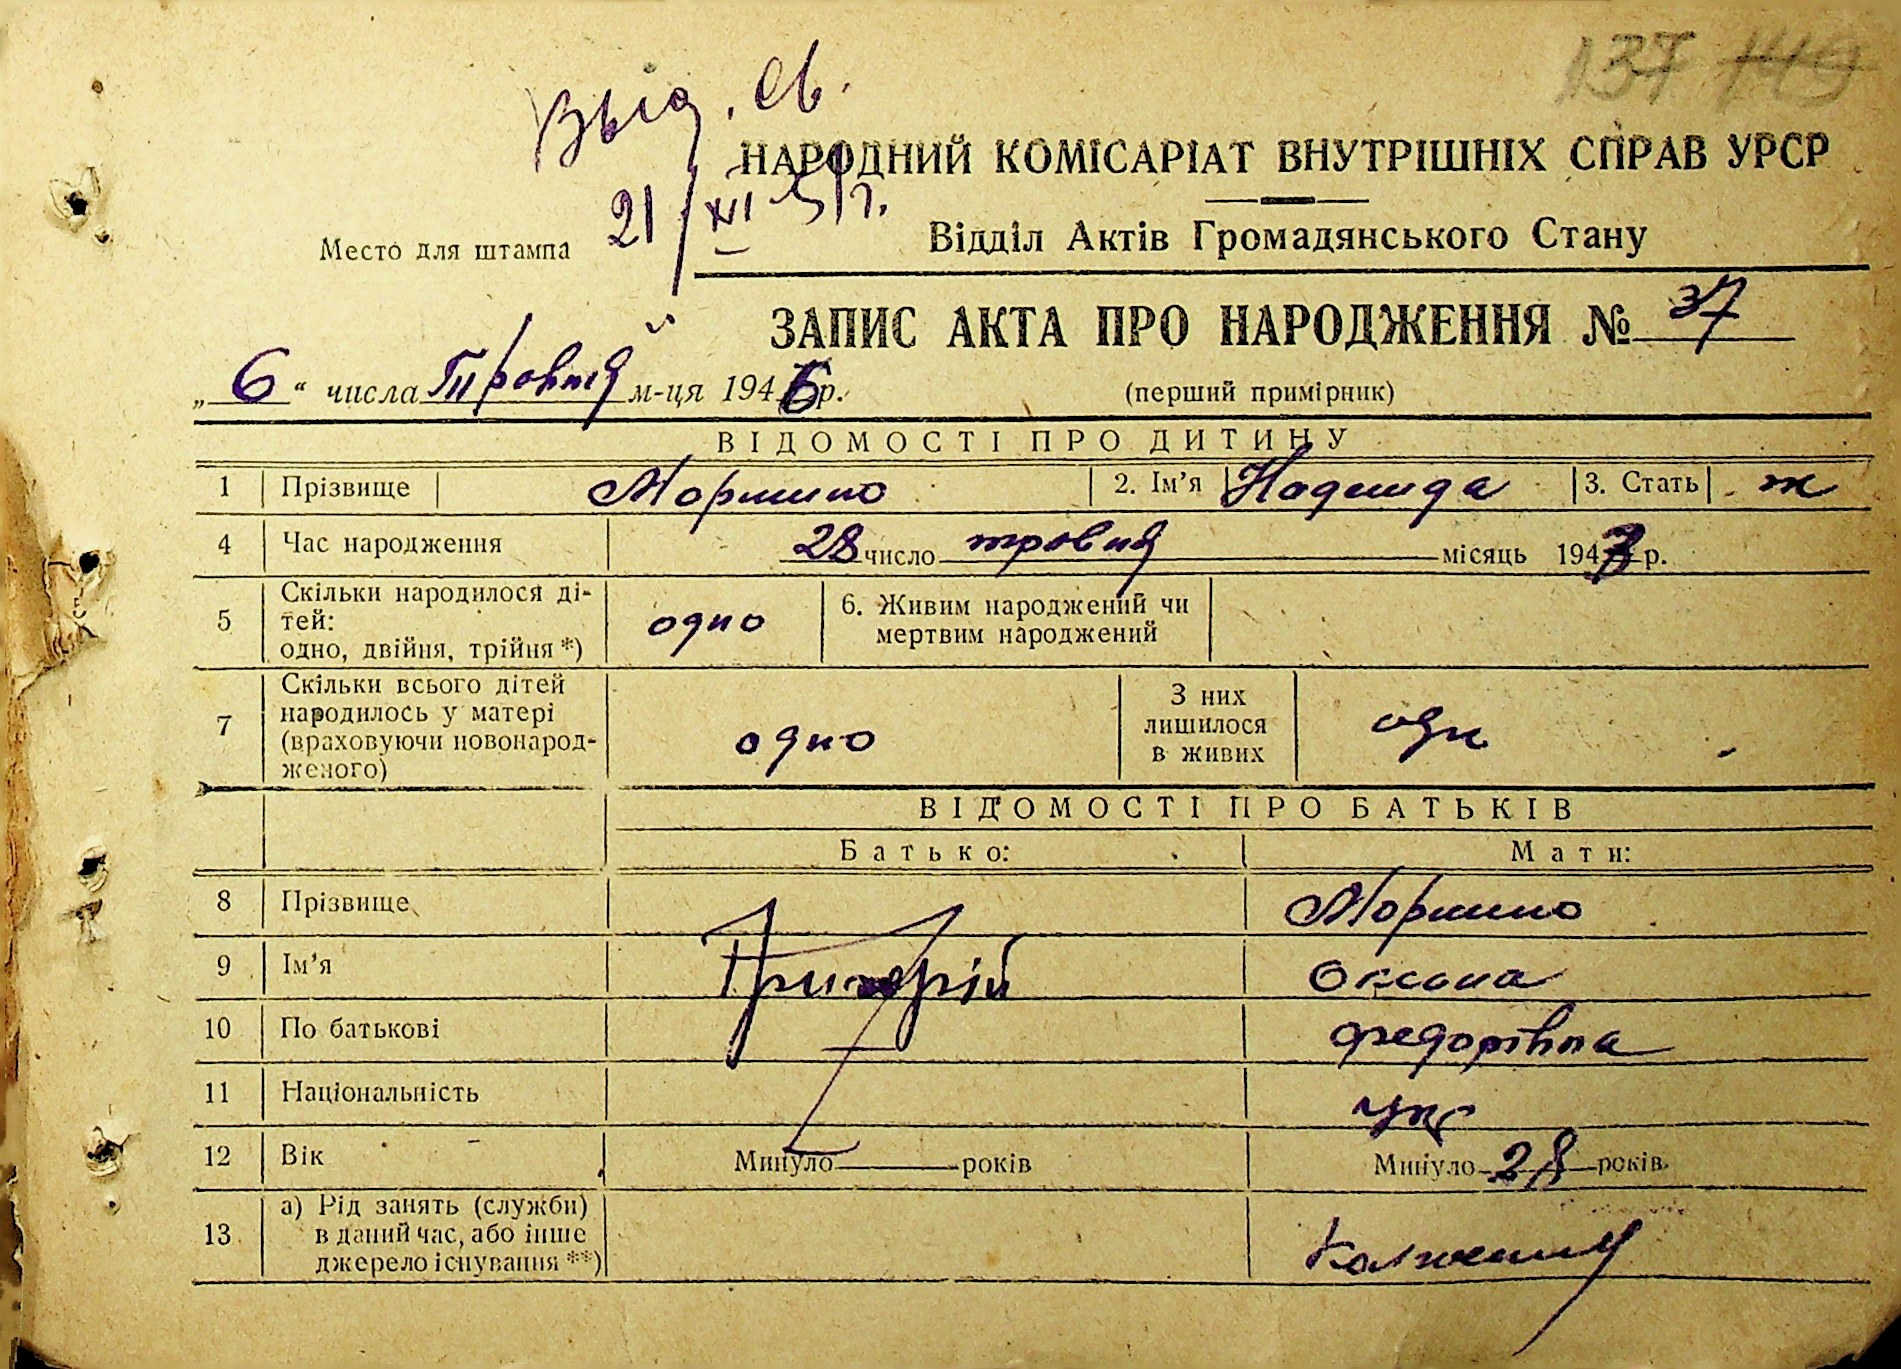 137 149
Выд. св.
21/XI 51г.
НАРОДНИЙ КОМІСАРІАТ ВНУТРІШНІХ СПРАВ УРСР
Відділ Актів Громадянського Стану
Место для штампа
ЗАПИС АКТА ПРО НАРОДЖЕННЯ № 37
„6“ числа Травня м-ця 1946 р.
(перший примірник)
ВІДОМОСТІ ПРО ДИТИНУ
1 Прізвище 2. Ім’я Надежда 3. Стать ж
4 Час народження 28 число травня місяць 1943 р.
5 Скільки народилося ді-
тей:
одно, двійня, трійня *) одно 6. Живим народжений чи
мертвим народжений
7 Скільки всього дітей
народилось у матері
(враховуючи новонарод-
женого) одно З них
лишилося
в живих одн
ВІДОМОСТІ ПРО БАТЬКІВ
Батько: Мати:
8 Прізвище
9 Ім’я Григорій Оксана
10 По батькові Федорівна
11 Національність укр
12 Вік Минуло років Минуло 28 років
13 а) Рід занять (служби)
в даний час, або інше
джерело існування **)